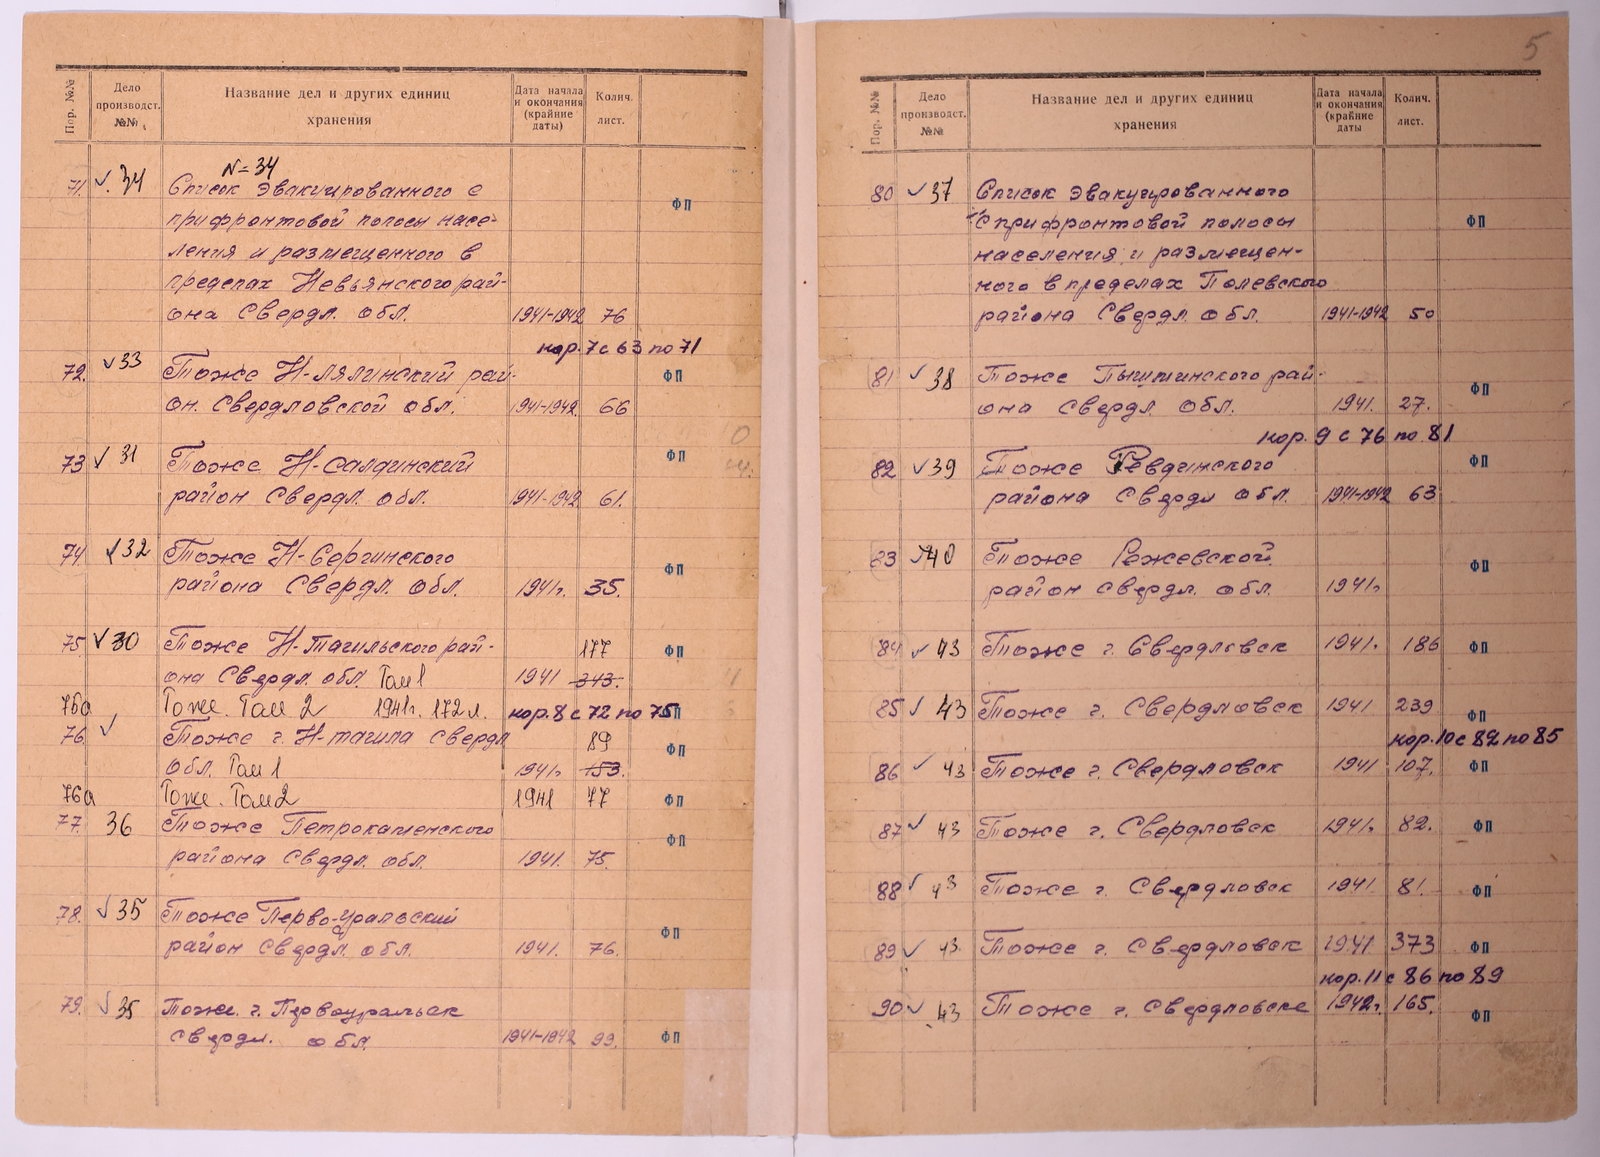 Пор. №№
Дело производст. №№
Название дел и других единиц хранения
Дата начала и окончания (крайние даты)
Колич. лист.
N=34
71. 34 Список эвакуированного с
прифронтовой полосы насе-
ления и размещенного в
пределах Невьянского рай-
она Свердл. обл. 1941-1942 76 ФП
кор. 7 с 63 по 71
72. 33 Тоже Н-Лялинский рай-
он. Свердловской обл. 1941-1942. 66 ФП
73 31 Тоже Н-Салдинский
район Свердл. обл. 1941-1942. 61. ФП
74 32 Тоже Н-Сергинского
района Свердл. обл. 1941г. 35. ФП
75. 30 Тоже Н-Тагильского рай- 177
она Свердл. обл. Том 1 1941 343. ФП
75а Тоже. Том 2 1941г. 172 л. ФП
кор. 8 с 72 по 75
76. Тоже г. Н-тагила свердл 89
обл. Том 1 1941г 153. ФП
76а Тоже. Том 2 1941 77 ФП
77. 36 Тоже Петрокаменского
района Свердл. обл. 1941. 75. ФП
78. 35 Тоже Перво-уральский
район Свердл. обл. 1941. 76. ФП
79. 35 Тоже г. Первоуральск
Свердл. обл. 1941-1942 99. ФП
5
Пор. №№
Дело производст. №№
Название дел и других единиц хранения
Дата начала и окончания (крайние даты
Колич. лист.
80 37 Список эвакуированного
с прифронтовой полосы
населения и размещен-
ного в пределах Полевского
района Свердл. обл. 1941-1942 50 ФП
81 38 Тоже Пышминского рай-
она Свердл. обл. 1941. 27. ФП
кор. 9 с 76 по 81
82 39 Тоже Ревдинского
района Свердл обл. 1941-1942 63 ФП
83 40 Тоже Режевской
район Свердл. обл. 1941г ФП
84 43 Тоже г. Свердловск 1941. 186 ФП
85 43 Тоже г. Свердловск 1941 239 ФП
кор. 10 с 82 по 85
86 43 Тоже г. Свердловск 1941 107. ФП
87 43 Тоже г. Свердловск 1941. 82. ФП
88 43 Тоже г. Свердловск 1941 81. ФП
89 43 Тоже г. Свердловск 1941 373 ФП
кор. 11 с 86 по 89
90 43 Тоже г. Свердловске 1942г. 165. ФП